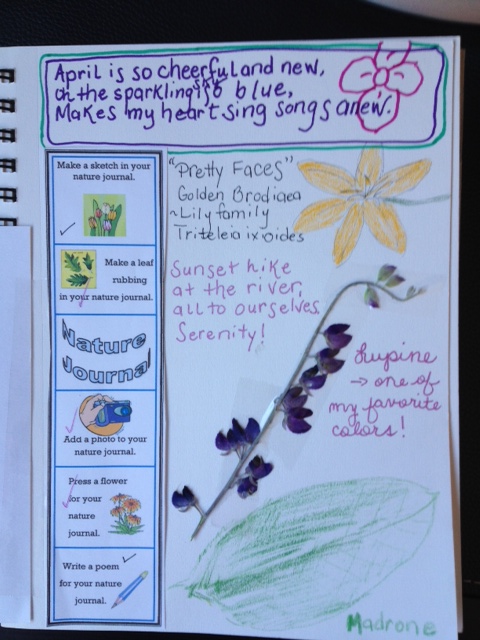 April is so cheerful and new,
Oh the sparkling so blue,
Makes my heart sing songs anew.
Make a sketch in your
nature journal.
Make a leaf
rubbing
in your nature journal.
Nature
Journal
Add a photo to your
nature journal.
Press a flower
for your
nature
journal.
Write a poem
for your nature
journal.
"Pretty Faces"
Golden Brodiaea
~Lily family
Triteleia ixioides
Sunset hike
at the river,
all to ourselves.
Serenity!
Lupine
→ one of
my favorite
colors!
Madrone